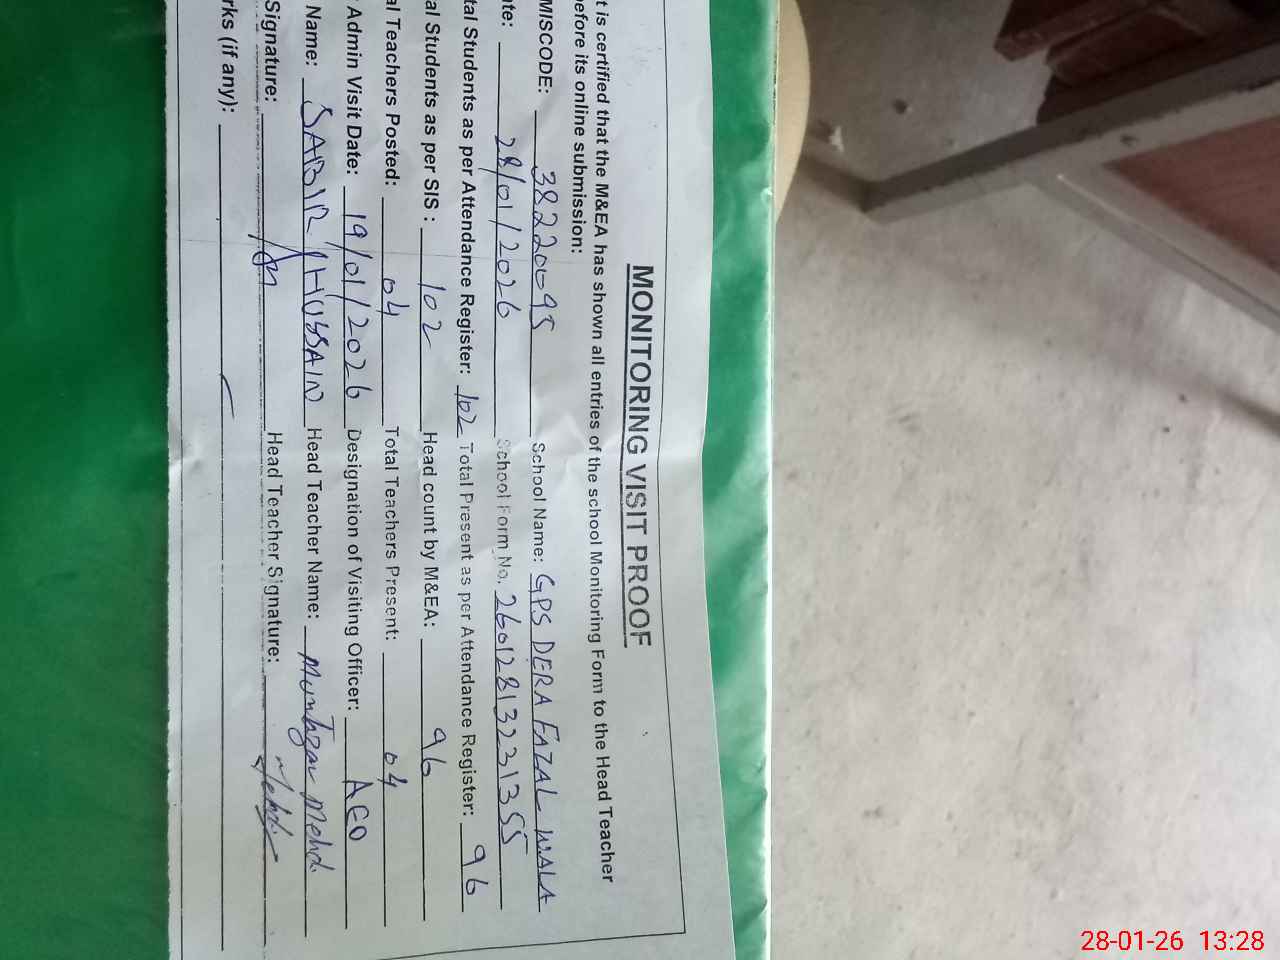 MONITORING VISIT PROOF
t is certified that the M&EA has shown all entries of the school Monitoring Form to the Head Teacher
before its online submission:
MISCODE: 38220095 School Name: GPS DERA FAZAL WALA
te: 28/01/2026 School Form No. 26012813231355
tal Students as per Attendance Register: 102 Total Present as per Attendance Register: 96
al Students as per SIS : 102 Head count by M&EA: 96
al Teachers Posted: 04 Total Teachers Present: 04
Admin Visit Date: 19/01/2026 Designation of Visiting Officer: AEO
Name: SABIR HUSSAIN Head Teacher Name: Muntazar Mehdi
Signature: Head Teacher Signature:
rks (if any):
28-01-26 13:28